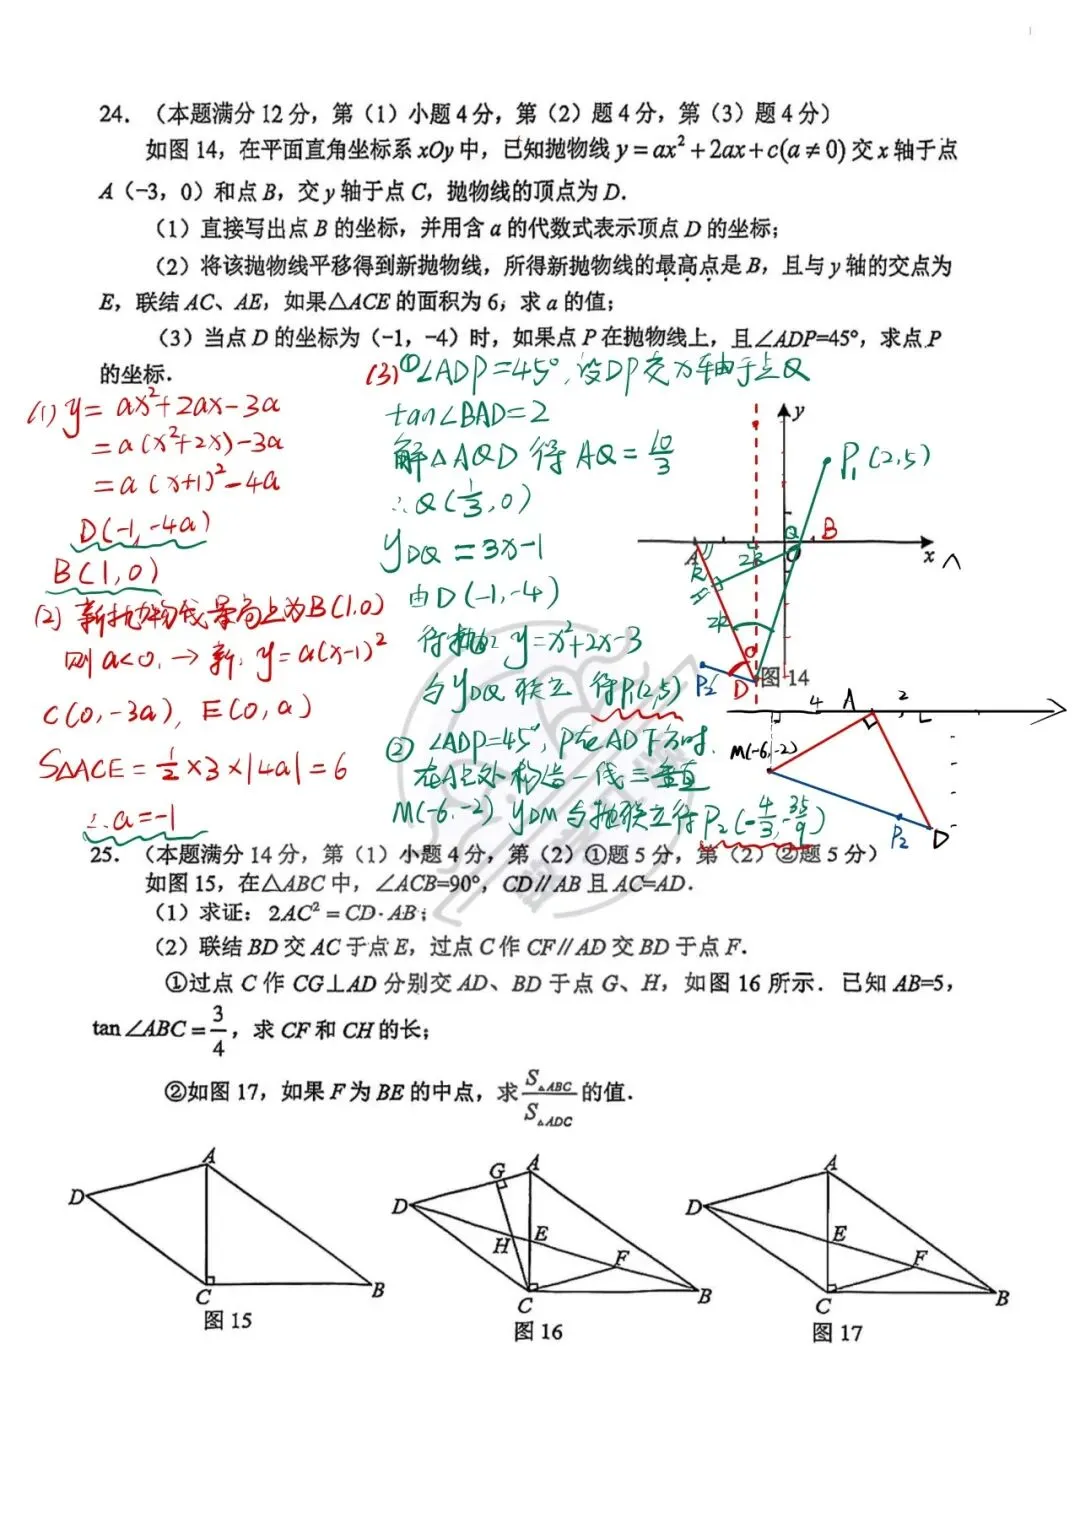 24. （本题满分 12 分，第（1）小题 4 分，第（2）题 4 分，第（3）题 4 分）
如图 14，在平面直角坐标系 xOy 中，已知抛物线 y=ax²+2ax+c(a≠0) 交 x 轴于点
A（-3，0）和点 B，交 y 轴于点 C，抛物线的顶点为 D.
（1）直接写出点 B 的坐标，并用含 a 的代数式表示顶点 D 的坐标；
（2）将该抛物线平移得到新抛物线，所得新抛物线的最高点是 B，且与 y 轴的交点为
E，联结 AC、AE，如果△ACE 的面积为 6，求 a 的值；
（3）当点 D 的坐标为（-1，-4）时，如果点 P 在抛物线上，且∠ADP=45°，求点 P
的坐标.
(1) y=ax²+2ax-3a
=a(x²+2x)-3a
=a(x+1)²-4a
D(-1,-4a)
B(1,0)
(2) 新抛物线最高点为B(1,0)
则 a<0. → 新: y=a(x-1)²
C(0,-3a), E(0,a)
S△ACE=½×3×|4a|=6
∴a=-1
(3)①∠ADP=45°,设DP交x轴于点Q
tan∠BAD=2
解△AQD 得 AQ=10/3
∴Q(1/3,0)
yDQ=3x-1
由D(-1,-4)
得抛: y=x²+2x-3
与yDQ 联立 得P₁(2,5)
② ∠ADP=45°,P在AD下方时.
在A点处构造一线三垂直
M(-6,-2) yDM与抛联立得P₂(-4/3,-35/9)
y
P₁(2,5)
A
2k
Q
B
O
x
k
H
2k
P₂
D
图 14
4
A
2
M(-6,-2)
P₂
D
25. （本题满分 14 分，第（1）小题 4 分，第（2）①题 5 分，第（2）②题 5 分）
如图 15，在△ABC 中，∠ACB=90°，CD∥AB 且 AC=AD.
（1）求证：2AC²=CD·AB；
（2）联结 BD 交 AC 于点 E，过点 C 作 CF∥AD 交 BD 于点 F.
①过点 C 作 CG⊥AD 分别交 AD、BD 于点 G、H，如图 16 所示. 已知 AB=5，
tan∠ABC=3/4，求 CF 和 CH 的长；
②如图 17，如果 F 为 BE 的中点，求 S△ABC/S△ADC 的值.
A
D
C
B
图 15
G
A
D
H
E
F
C
B
图 16
A
D
E
F
C
B
图 17